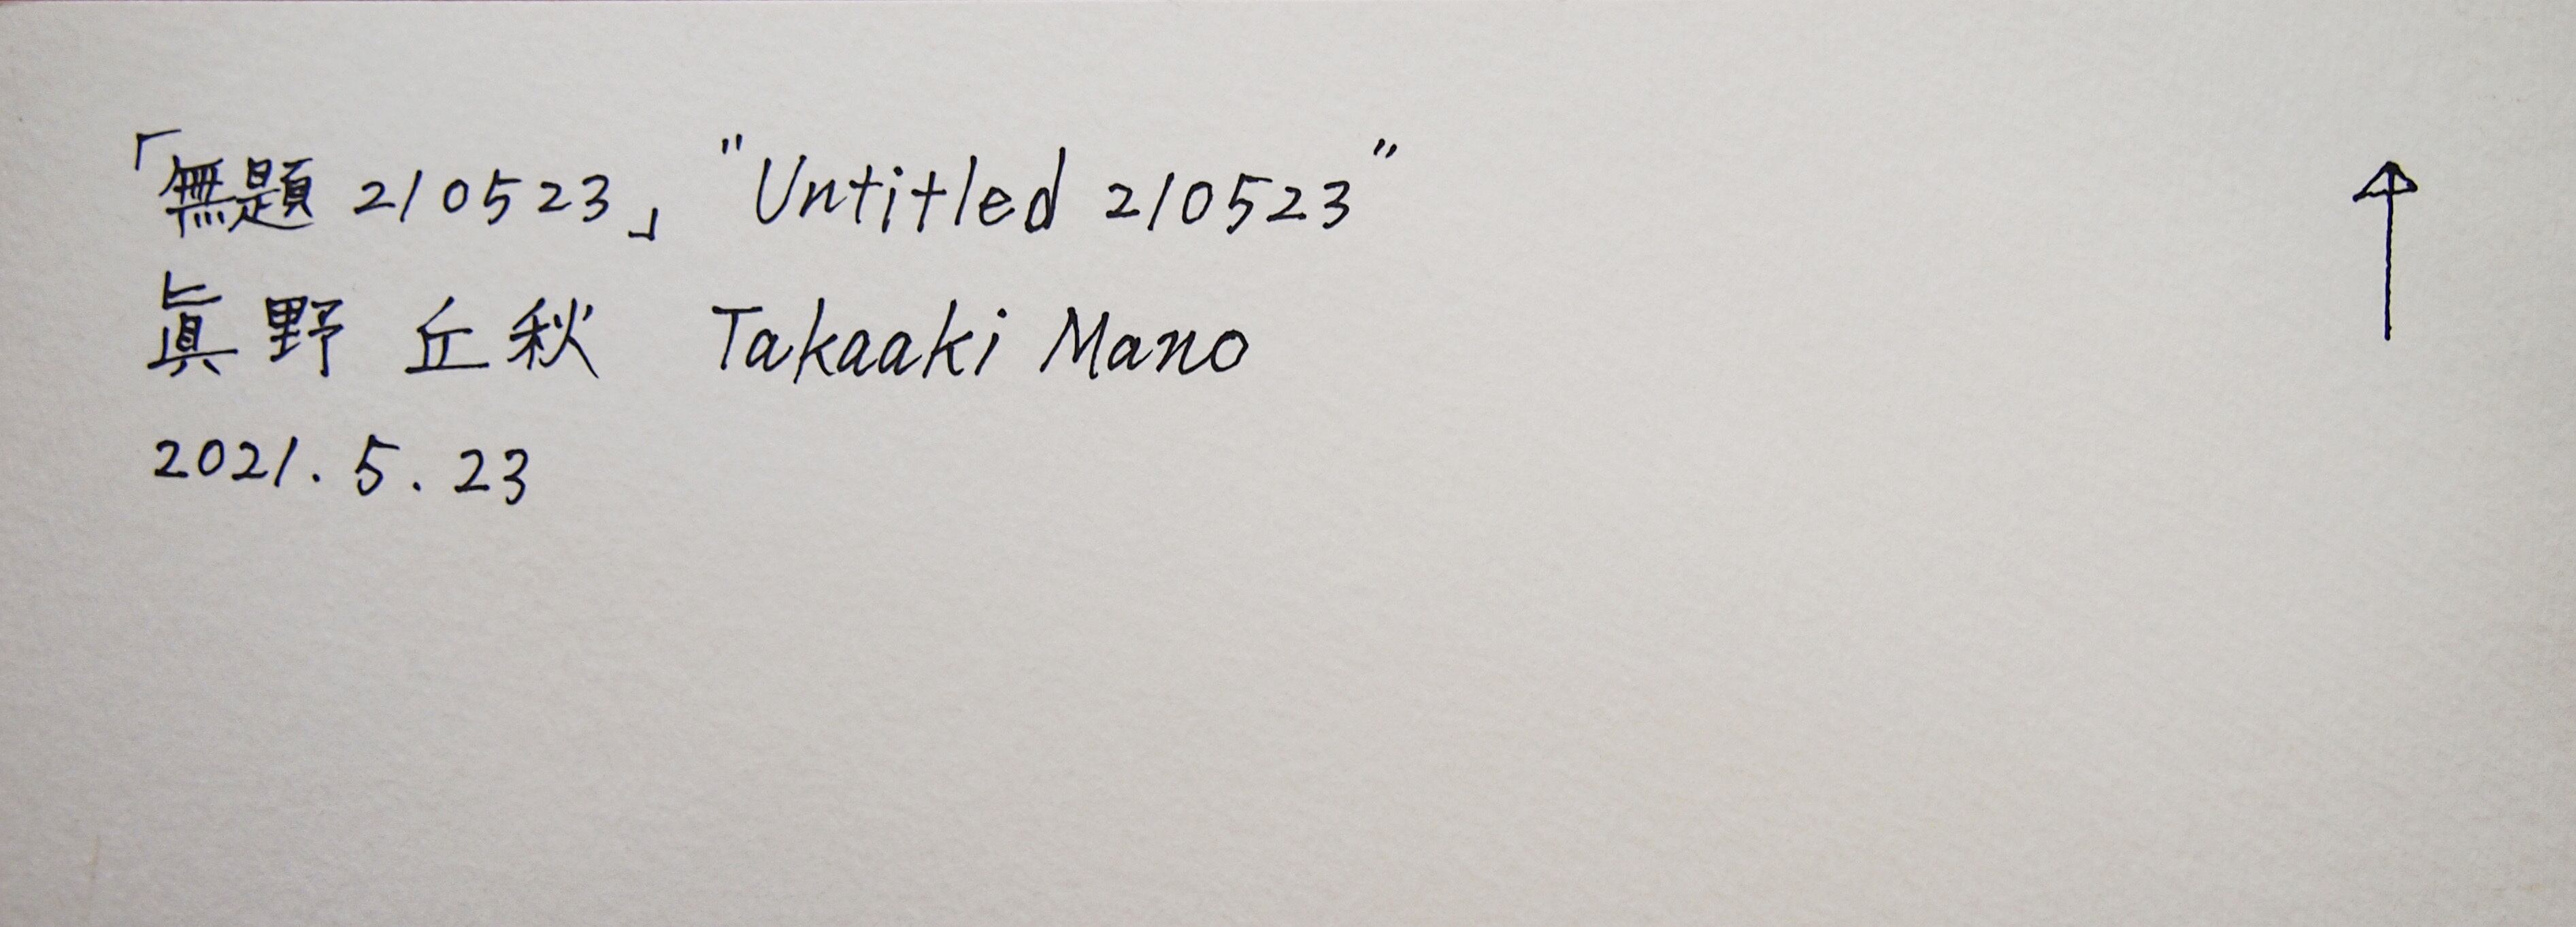 「無題 210523」 "Untitled 210523"
眞野 丘秋 Takaaki Mano
2021. 5. 23